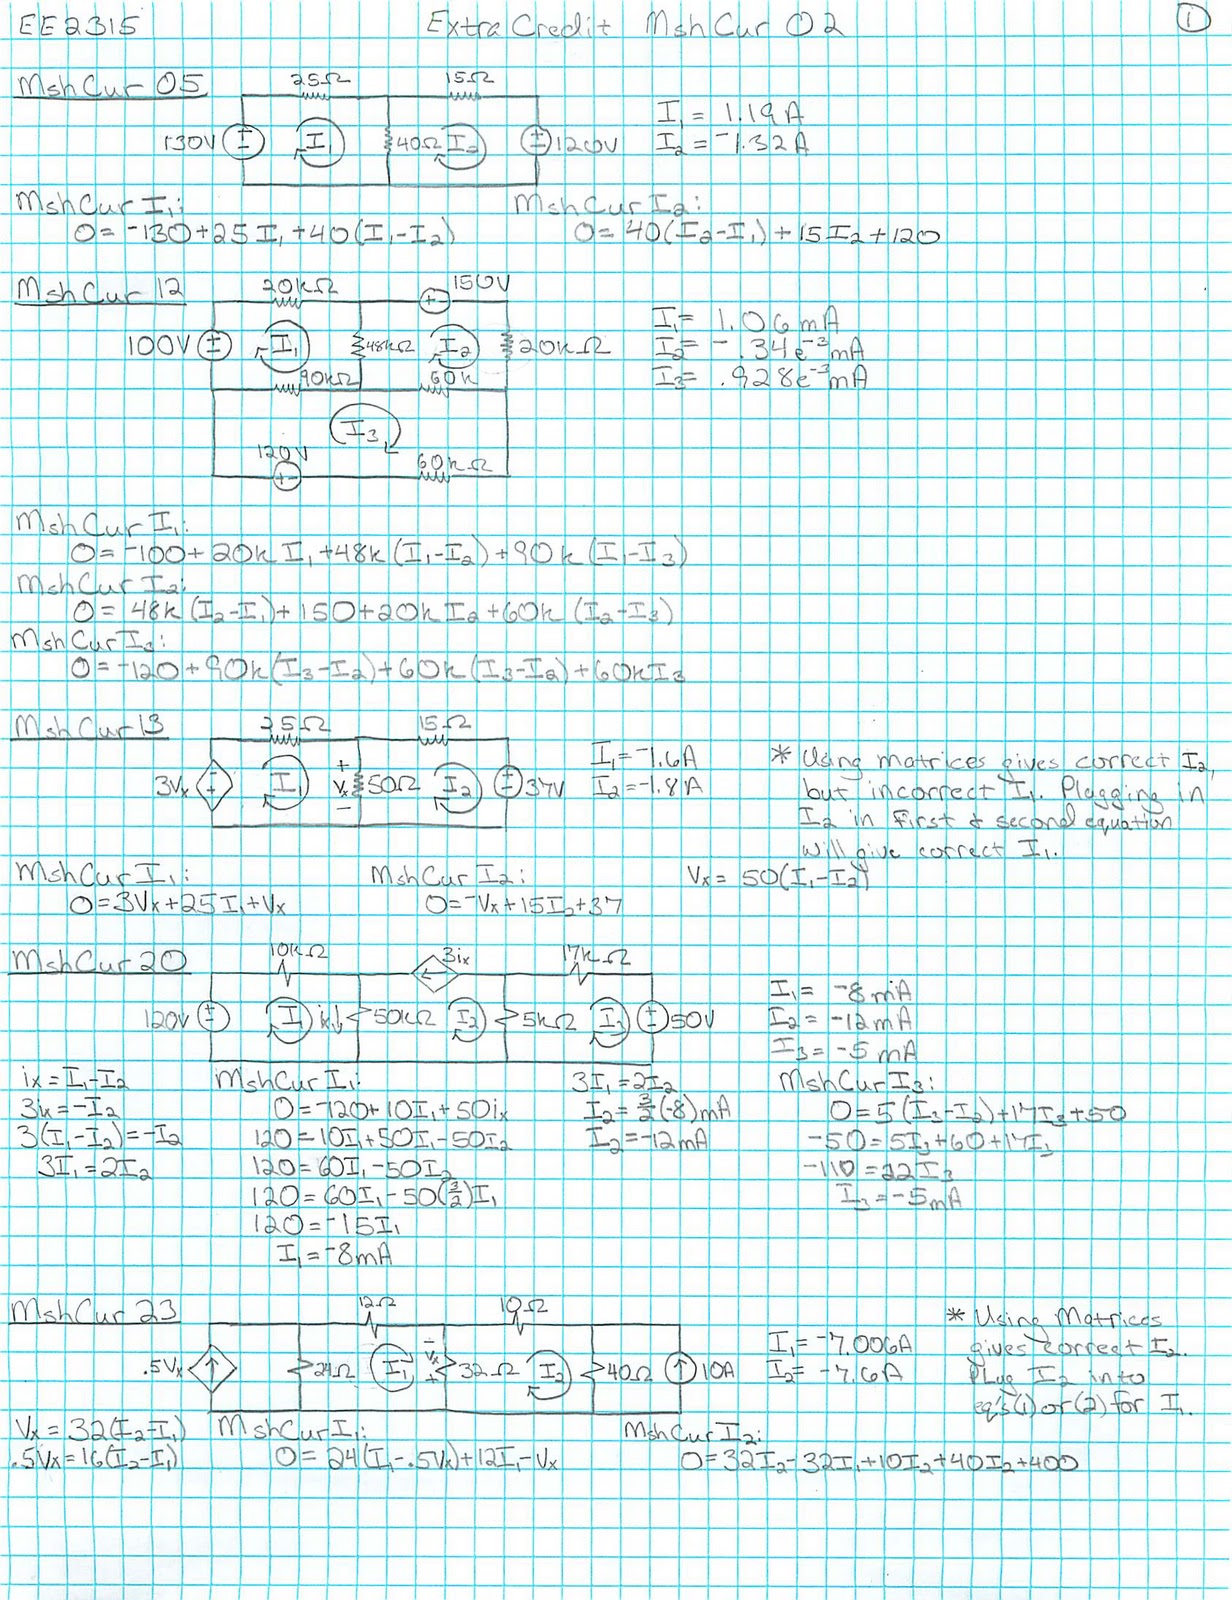 EE2315 Extra Credit MshCur 02 1
MshCur 05
25Ω 15Ω
130V I₁ 40Ω I₂ 120V
I₁ = 1.19A
I₂ = -1.32A
MshCur I₁: MshCur I₂:
0 = -130+25I₁+40(I₁-I₂) 0 = 40(I₂-I₁)+15I₂+120
MshCur 12
20kΩ 150V
100V I₁ 48kΩ I₂ 20kΩ
90kΩ 60k
I₃
120V 60kΩ
I₁ = 1.06mA
I₂ = -.34e⁻³mA
I₃ = .928e⁻³mA
MshCur I₁:
0 = -100+20kI₁+48k(I₁-I₂)+90k(I₁-I₃)
MshCur I₂:
0 = 48k(I₂-I₁)+150+20kI₂+60k(I₂-I₃)
MshCur I₃:
0 = -120+90k(I₃-I₂)+60k(I₃-I₂)+60kI₃
MshCur 13
25Ω 15Ω
3Vx I₁ + Vx - 50Ω I₂ 37V
I₁ = -1.6A
I₂ = -1.8A
* Using matrices gives correct I₂,
but incorrect I₁. Plugging in
I₂ in first & second equation
will give correct I₁.
MshCur I₁: MshCur I₂: Vx = 50(I₁-I₂)
0 = 3Vx+25I₁+Vx 0 = -Vx+15I₂+37
MshCur 20
10kΩ 3ix 17kΩ
120V I₁ ix↓ 50kΩ I₂ 5kΩ I₃ 50V
I₁ = -8mA
I₂ = -12mA
I₃ = -5mA
ix = I₁-I₂
3ix = -I₂
3(I₁-I₂) = -I₂
3I₁ = 2I₂
MshCur I₁:
0 = -120+10I₁+50ix
120 = 10I₁+50I₁-50I₂
120 = 60I₁-50I₂
120 = 60I₁-50(3/2)I₁
120 = -15I₁
I₁ = -8mA
3I₁ = 2I₂
I₂ = 3/2(-8)mA
I₂ = -12mA
MshCur I₃:
0 = 5(I₃-I₂)+17I₃+50
-50 = 5I₃+60+17I₃
-110 = 22I₃
I₃ = -5mA
MshCur 23
12Ω 10Ω
.5Vx 24Ω I₁ - Vx + 32Ω I₂ 40Ω 10A
I₁ = -7.006A
I₂ = -7.6A
* Using Matrices
gives correct I₂.
Plug I₂ into
eq's (1) or (2) for I₁.
Vx = 32(I₂-I₁)
.5Vx = 16(I₂-I₁)
MshCur I₁:
0 = 24(I₁-.5Vx)+12I₁-Vx
MshCur I₂:
0 = 32I₂-32I₁+10I₂+40I₂+400